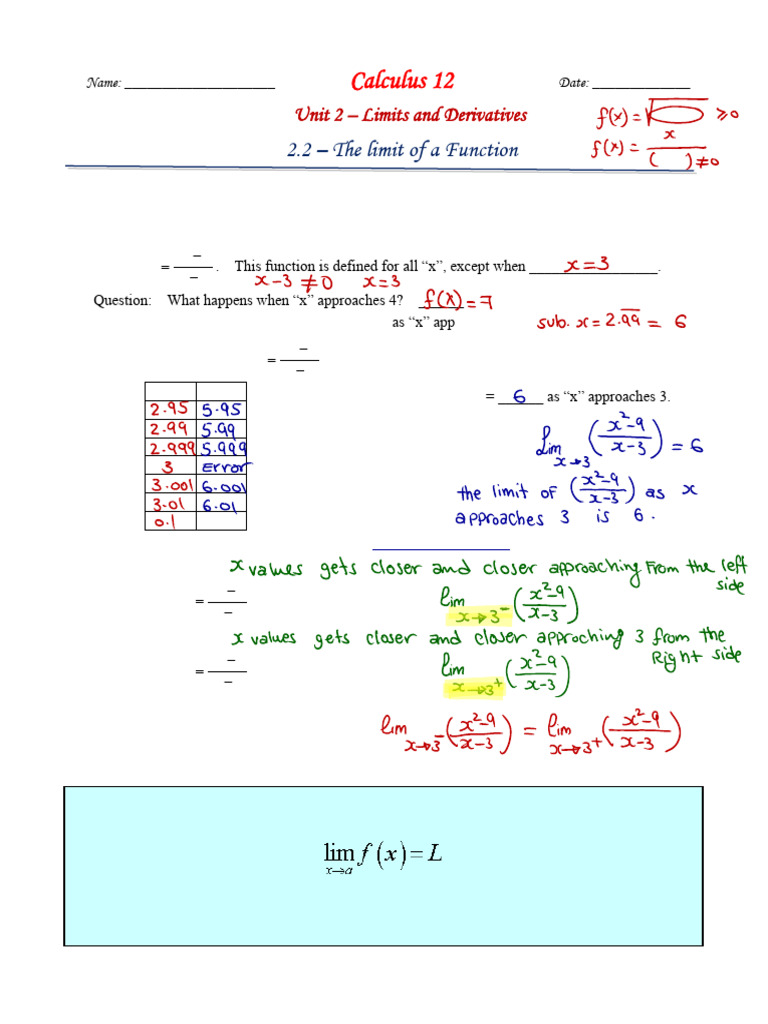 Name: ____________________ Calculus 12 Date: _____________
Unit 2 – Limits and Derivatives
f(x) = √ ≥0
2.2 – The limit of a Function
f(x) = x/( ) ≠0
= –/– . This function is defined for all “x”, except when x=3.
x-3 ≠0 x=3
Question: What happens when “x” approaches 4? f(x)=7
as “x” app sub. x= 2.99 = 6
= –/–
= 6 as “x” approaches 3.
2.95 5.95
2.99 5.99
2.999 5.999
3 Error
3.001 6.001
3.01 6.01
0.1
Lim x→3 (x²-9/x-3) = 6
the limit of (x²-9/x-3) as x
approaches 3 is 6.
x values gets closer and closer approaching From the left
side
= –/– lim x→3⁻ (x²-9/x-3)
x values gets closer and closer approching 3 from the
Right side
= –/– lim x→3⁺ (x²-9/x-3)
lim x→3⁻ (x²-9/x-3) = lim x→3⁺ (x²-9/x-3)
lim x→a f(x) = L